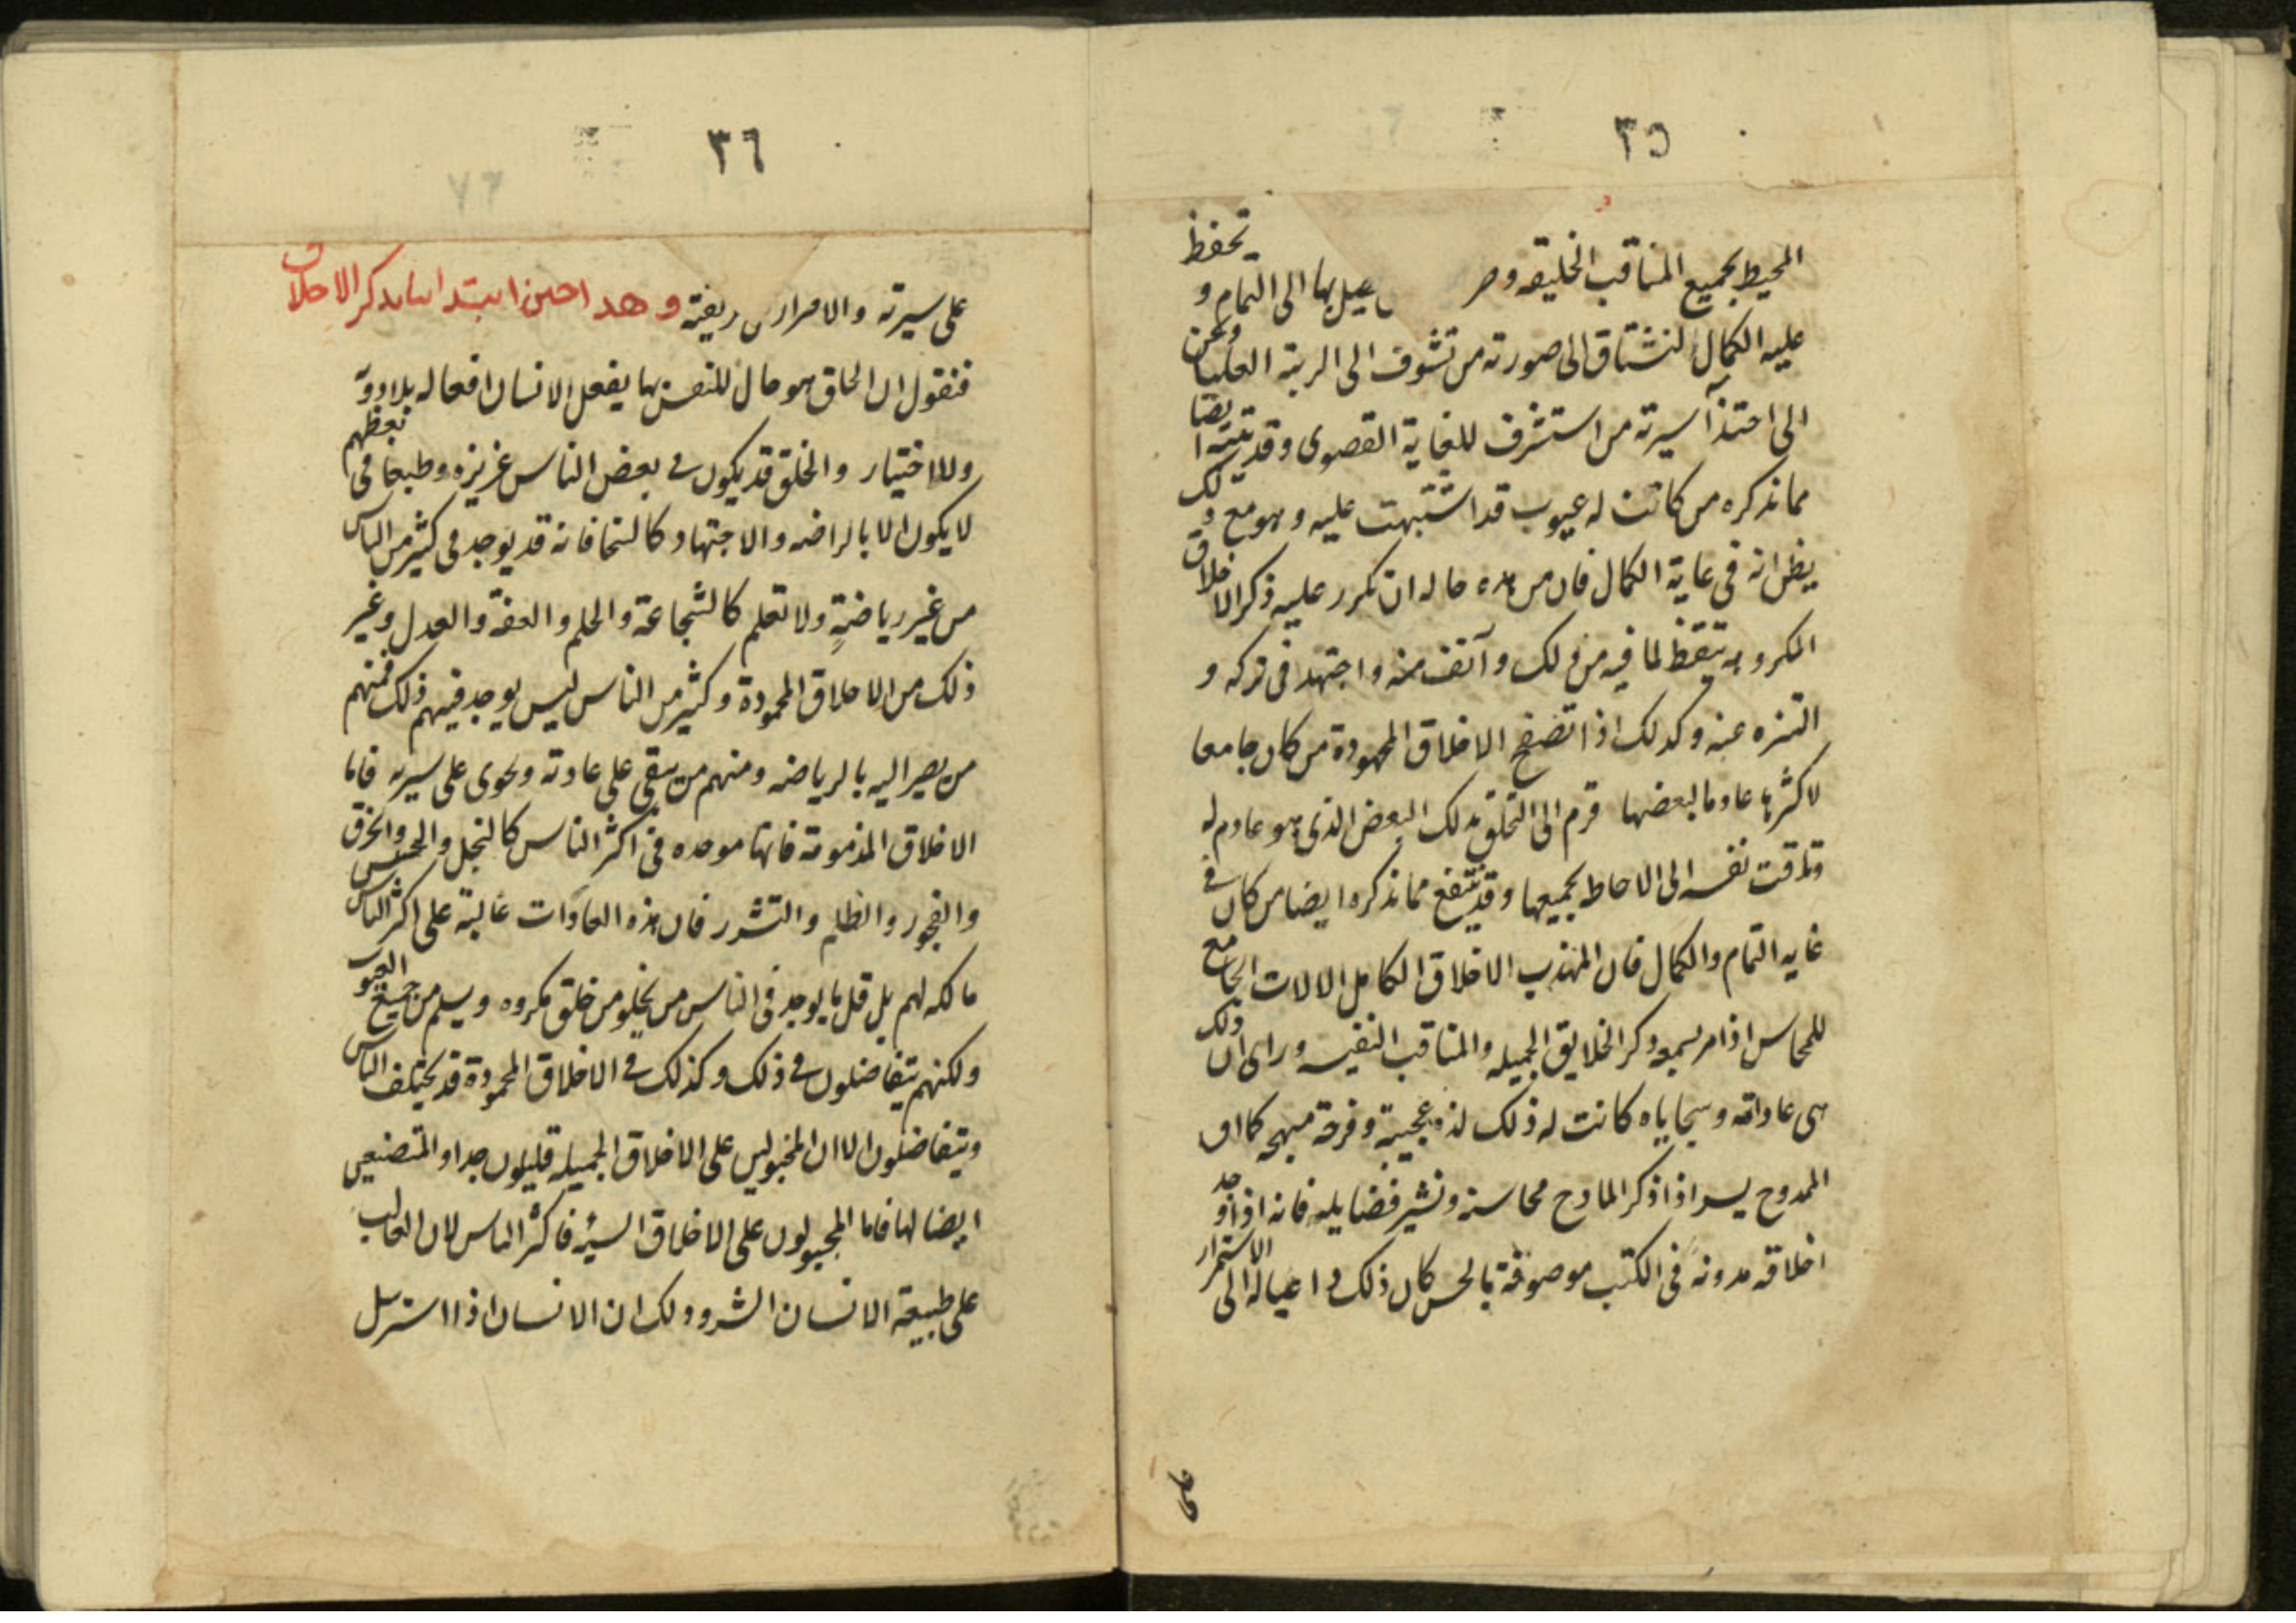 ٣٥
المحيط بجميع المناقب الخليقه وطر يصل بها الى التمام و تحفظ
عليه الكمال لنشتاق الى صورته من تشوف الى الرتبة العليا ونحن
الى احتذآ سيرته من استشرف للغاية القصوى وقد يتنبه ايضا
مما نذكره من كانت له عيوب قد اشتبهت عليه وهو مع ذلك
يظن انه فى غاية الكمال فان من هذه حاله ان تكرر عليه ذكر الاخلاق
المكروهه تيقظ لما فيه من ذلك وآنف منه واجتهد فى تركه و
التنزه عنه وكذلك اذا تصفح الاخلاق المحمودة من كان جامعا
لاكثرها عادما لبعضها قرم الى التخلق بذلك البعض الذى هو عادم له
وتاقت نفسه الى الاحاطه بجميعها وقد ينتفع مما نذكره ايضا من كان فى
غايه التمام والكمال فان المهذب الاخلاق الكامل الالات الجامع
للمحاسن اذا مر بسمعه ذكر الخلايق الجميله والمناقب النفيسه وراى ان ذلك
هى عاداته وسجاياه كانت له ذلك لذه عجيبة وفرحة مبهجه كما ان
الممدوح يسر اذا ذكر المادح محاسنه ونشر فضايله فانه اذا وجد
اخلاقه مدونه فى الكتب موصوفة بالحسن كان ذلك داعيا له الى الاستمرار
على
٣٦
على سيرته والامرار ريفته وهذا حين ابتدائنا بذكر الاخلاق
فنقول ان الخلق هو حال للنفس بها يفعل الانسان افعاله بلا روية
ولا اختيار والخلق قد يكون فى بعض الناس غريزه وطبعا فى بعضهم
لا يكون الا بالرياضه والاجتهاد كالسخا فانه قد يوجد فى كثير من الناس
من غير رياضةٍ ولا تعلم كالشجاعة والحلم والعفة والعدل وغير
ذلك من الاخلاق المحمودة وكثير من الناس ليس يوجد فيهم ذلك فمنهم
من يصير اليه بالرياضه ومنهم من يبقى على عادته ويجرى على سيرته فاما
الاخلاق المذمومة فانها موجوده فى اكثر الناس كالبخل والجبن والخرق
والفجور والظلم والتشرر فان هذه العادات غالبة على اكثر الناس
مالكه لهم بل قل ما يوجد فى الناس من يخلو من خلق مكروه ويسلم من جميع العيوب
ولكنهم يتفاضلون فى ذلك وكذلك فى الاخلاق المحمودة قد يختلف الناس
ويتفاضلون الا ان المجبولين على الاخلاق الجميله قليلون جدا والمتصنعين
ايضا لها فاما المجبولون على الاخلاق السيئه فاكثر الناس لان الغالب
على طبيعة الانسان الشر وذلك ان الانسان اذا استرسل